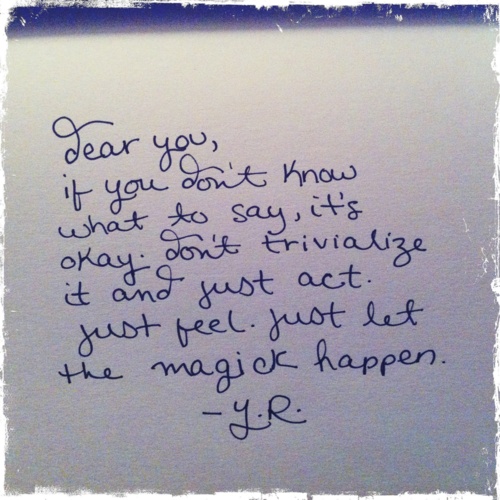 dear you,
if you don't know
what to say, it's
okay. don't trivialize
it and just act.
just feel. just let
the magick happen.
-Y.R.